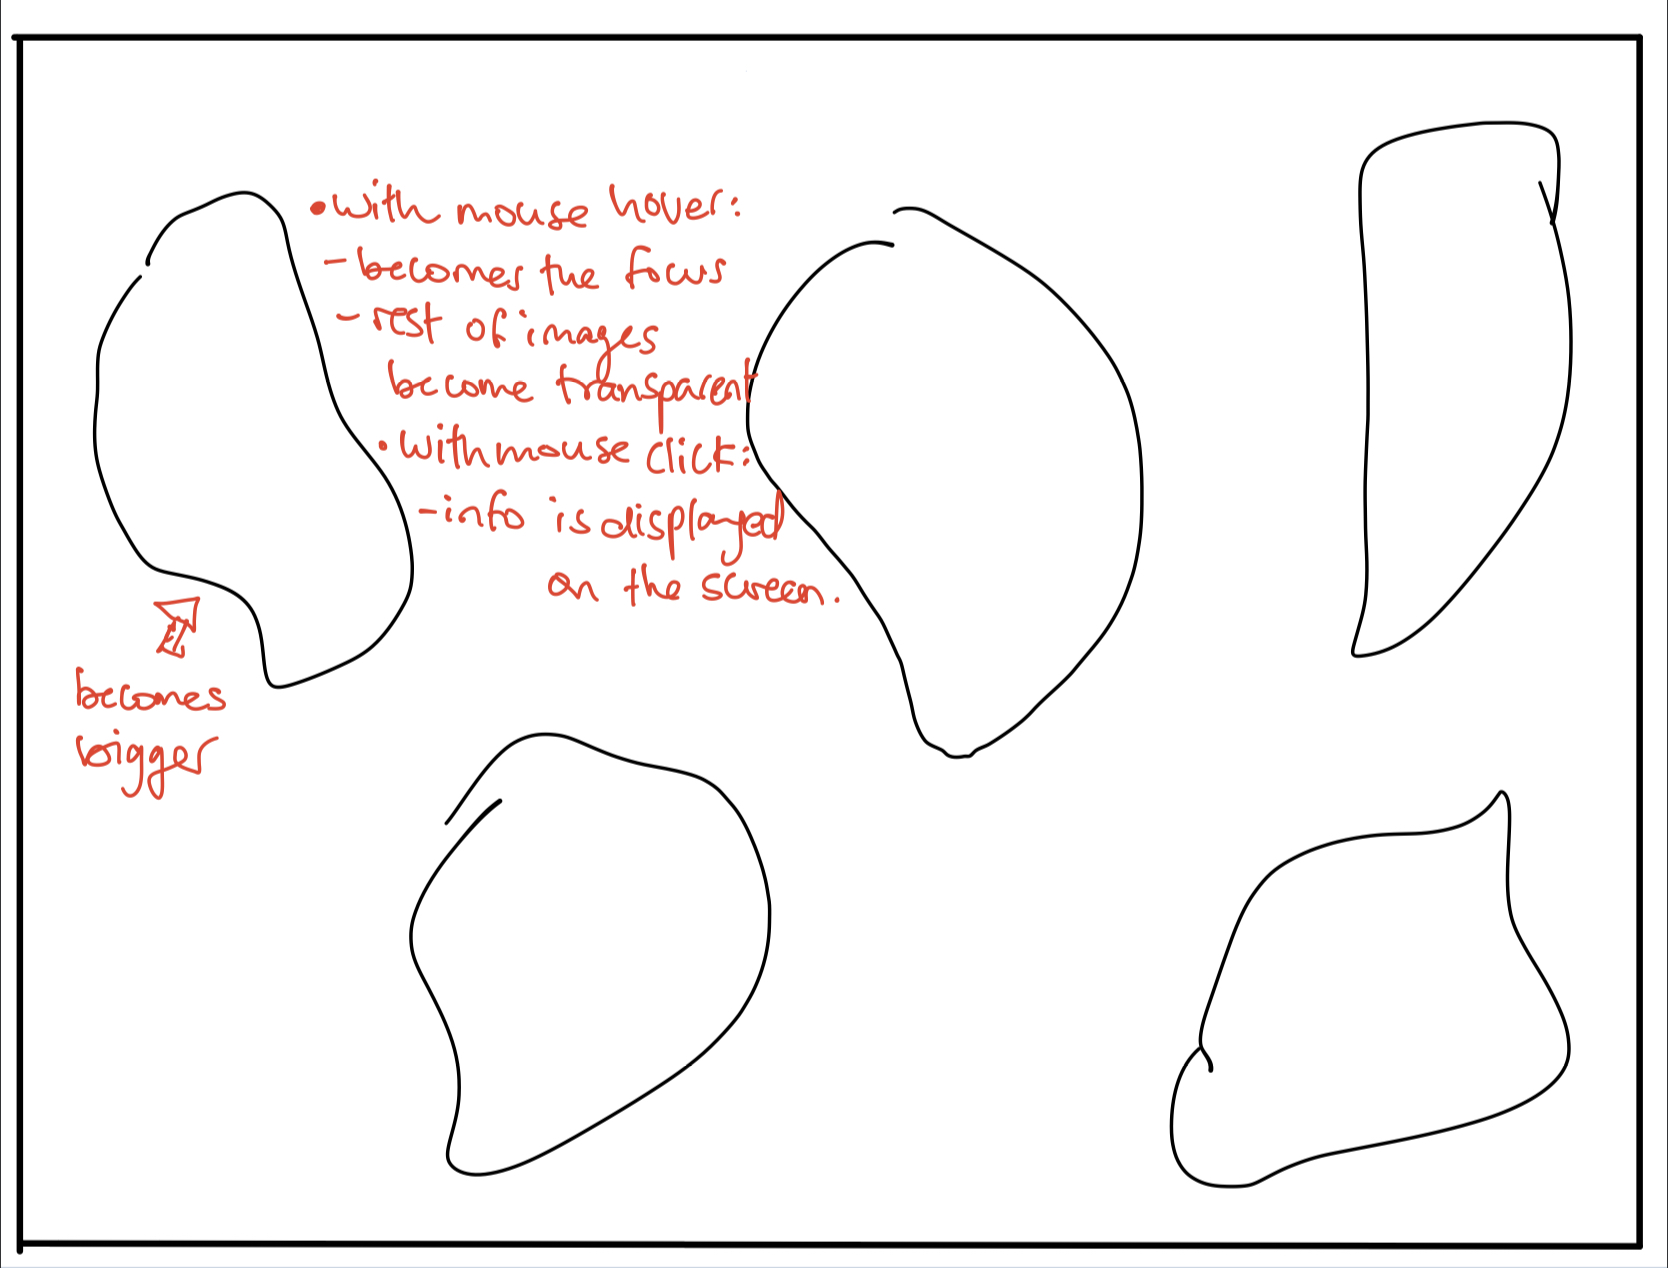 •with mouse hover:
- becomes the focus
- rest of images
become transparent
• with mouse click:
- info is displayed
on the screen.
becomes
bigger